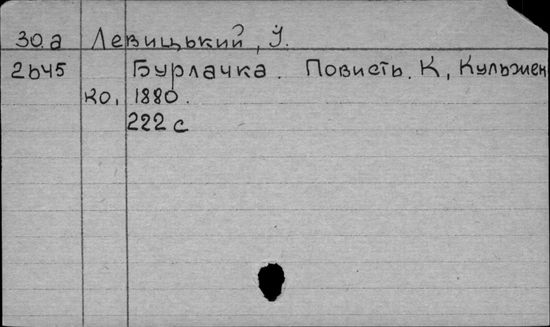 30.а Левицький, У.
2645 Бурлачка. Повисть. К, Кульжен
ко, 1880.
222 с